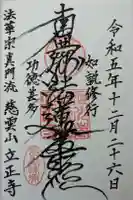 令和五年十二月二十六日
知説修行
南無妙法蓮華経
功徳甚多
法華宗真門流 慈雲山 立正寺